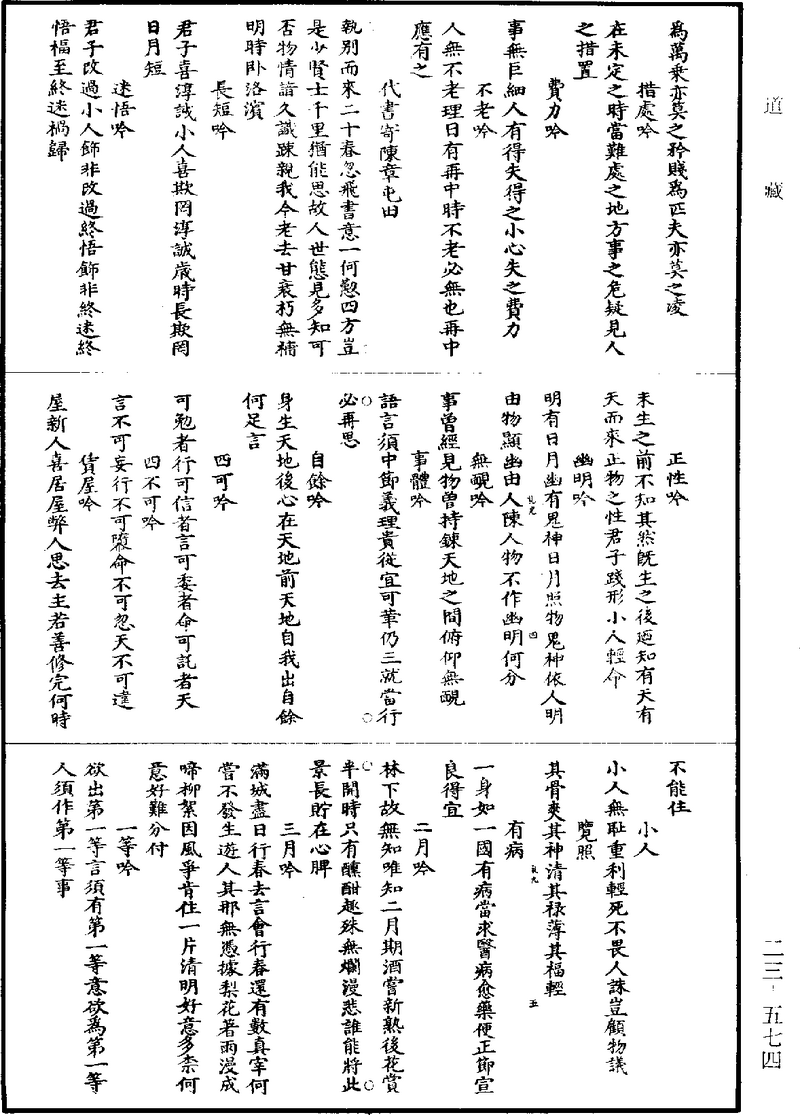 道藏
爲萬乘亦莫之矜賤爲匹夫亦莫之凌
措處吟
在未定之時當難處之地方事之危疑見人
之措置
費力吟
事無巨細人有得失得之小心失之費力
不老吟
人無不老理日有再中時不老必無也再中
應有之
代書寄陳章屯田
執別而來二十春忽飛書意一何勤四方豈
是少賢士千里猶能思故人世態見多知可
否物情諳久識踈親我今老去甘衰朽無補
明時卧洛濱
長短吟
君子喜淳誠小人喜欺罔淳誠歲時長欺罔
日月短
迷悟吟
君子改過小人飾非改過終悟飾非終迷終
悟福至終迷禍歸
正性吟
未生之前不知其然旣生之後廼知有天有
天而來正物之性君子踐形小人輕命
幽明吟
明有日月幽有鬼神日月照物鬼神依人明
由物顯幽由人陳人物不作幽明何分
無靦吟
事曾經見物曾持鍊天地之間俯仰無靦
事體吟
語言須中節義理貴從宜可華仍三就當行
必再思
自餘吟
身生天地後心在天地前天地自我出自餘
何足言
四可吟
可勉者行可信者言可委者命可託者天
四不可吟
言不可妄行不可隳命不可忽天不可違
賃屋吟
屋新人喜居屋弊人思去主若善修完何時
四
不能住
小人
小人無耻重利輕死不畏人誅豈顧物議
覽照
其骨爽其神清其祿薄其福輕
有病
一身如一國有病當求醫病愈藥便正節宣
良得宜
二月吟
林下故無知唯知二月期酒嘗新熟後花賞
半開時只有醺酣趣殊無爛漫悲誰能將此
景長貯在心脾
三月吟
滿城盡日行春去言會行春還有數真宰何
嘗不發生遊人其那無憑據梨花著雨漫成
啼柳絮因風爭肯住一片清明好意多柰何
意好難分付
一等吟
欲出第一等言須有第一等意欲爲第一等
人須作第一等事
五
二三·五七四